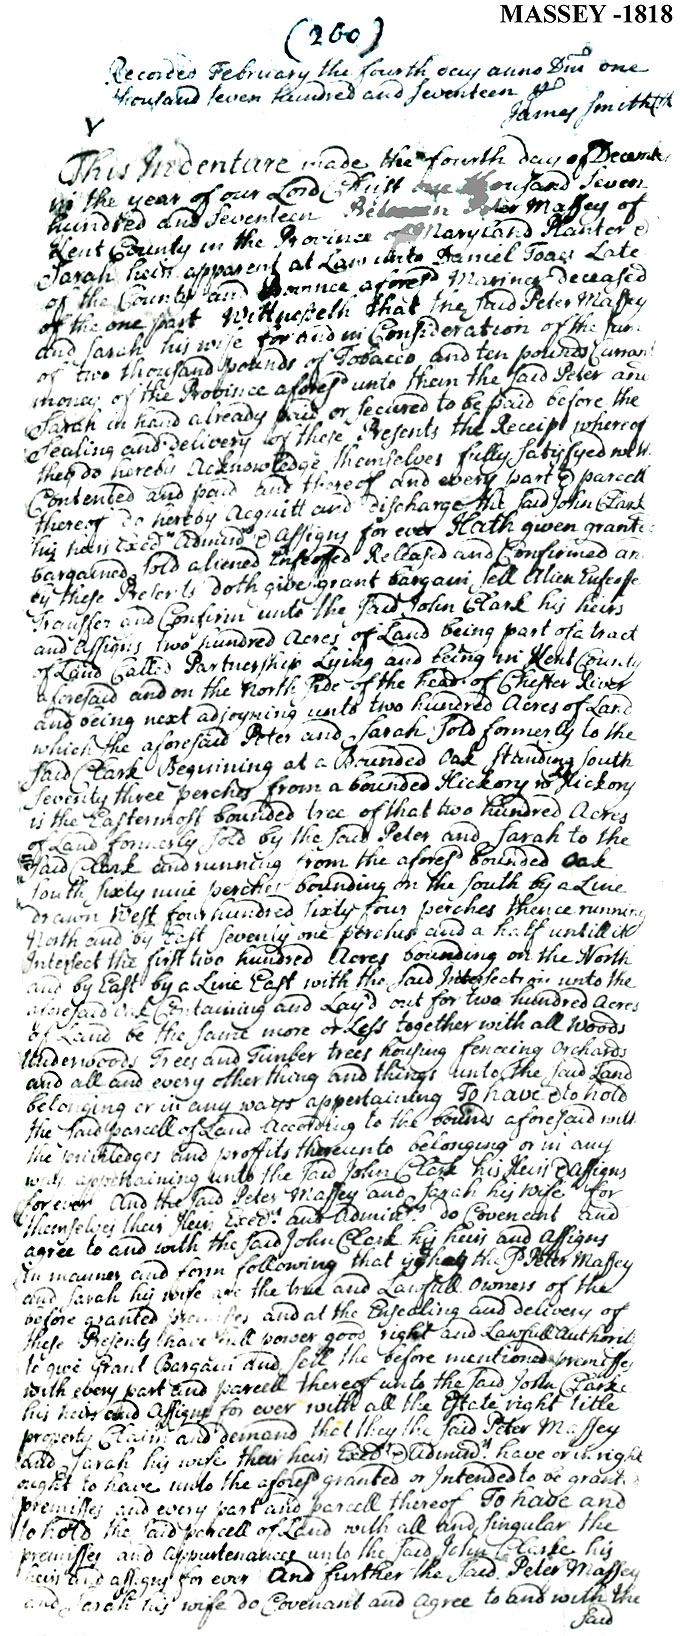 MASSEY -1818
(260)
Recorded February the fourth day anno Dm̄ one
thousand seven hundred and seventeen
James Smith Clk
This Indenture made the fourth day of December
in the year of our Lord Christ one thousand seven
hundred and seventeen Between Peter Massey of
Kent County in the Province of Maryland Planter &
Sarah heir apparent at Law unto Daniel Toaes Late
of the County and Province aforesd Mariner deceased
of the one part Wittnesseth that the said Peter Massey
and Sarah his wife for and in Consideration of the sum
of two thousand pounds of Tobacco and ten pounds Currant
money of the Province aforesd unto them the said Peter and
Sarah in hand already paid or secured to be paid before the
Sealing and delivery of these Presents the Receipt whereof
they do hereby Acknowledge themselves fully satisfyed well
Contented and paid and thereof and every part & parcell
thereof do hereby Acquitt and discharge the said John Clark
his heirs Execrs Adminrs & Assigns for ever Hath given granted
bargained sold aliened Enfeoffed Released and Confirmed and
by these Presents doth give grant bargain sell Alien Enfeoffe
Transfer and Confirm unto the said John Clark his heirs
and Assigns two hundred Acres of Land being part of a tract
of Land Called Partnership Lying and being in Kent County
aforesaid and on the North side of the head of Chester River
and being next adjoyning unto two hundred Acres of Land
which the aforesaid Peter and Sarah sold formerly to the
said Clark Beginning at a Bounded Oak standing south
seventy three perches from a bounded Hickory wch Hickory
is the Eastermost bounded tree of that two hundred Acres
of Land formerly sold by the said Peter and Sarah to the
said Clark and running from the aforesd bounded Oak
south sixty nine perches bounding on the south by a Line
drawn West four hundred sixty four perches thence running
North and by East seventy one perches and a half untill it
Intersect the first two hundred Acres bounding on the North
and by East by a Line East with the said Intersection unto the
aforesaid Oak Containing and Lay'd out for two hundred Acres
of Land be the same more or Less together with all Woods
Underwoods Trees and Timber trees housing fencing Orchards
and all and every other thing and things unto the said Land
belonging or in any ways appertaining To have & to hold
the said parcell of Land According to the bounds aforesaid with
the priviledges and proffits thereunto belonging or in any
ways appertaining unto the said John Clark his Heirs & Assigns
for ever And the said Peter Massey and Sarah his wife for
themselves their Heirs Execrs and Adminrs do Covenant and
agree to and with the said John Clark his heirs and Assigns
in manner and form following that is that the sd Peter Massey
and Sarah his wife are the true and Lawfull Owners of the
before granted premisses and at the Ensealing and delivery of
these Presents have full power good right and Lawfull Authority
to give Grant Bargain and sell the before mentioned premisses
with every part and parcell thereof unto the said John Clarke
his heirs and Assigns for ever with all the Estate right title
property Claim and demand that they the said Peter Massey
and Sarah his wife their heirs Execrs & Adminrs have or in right
ought to have unto the aforesd granted or Intended to be granted
premisses and every part and parcell thereof To have and
to hold the said parcell of Land with all and singular the
premisses and appurtenances unto the said John Clarke his
heirs and assigns for ever And further the said Peter Massey
and Sarah his wife do Covenant and agree to and with the
said